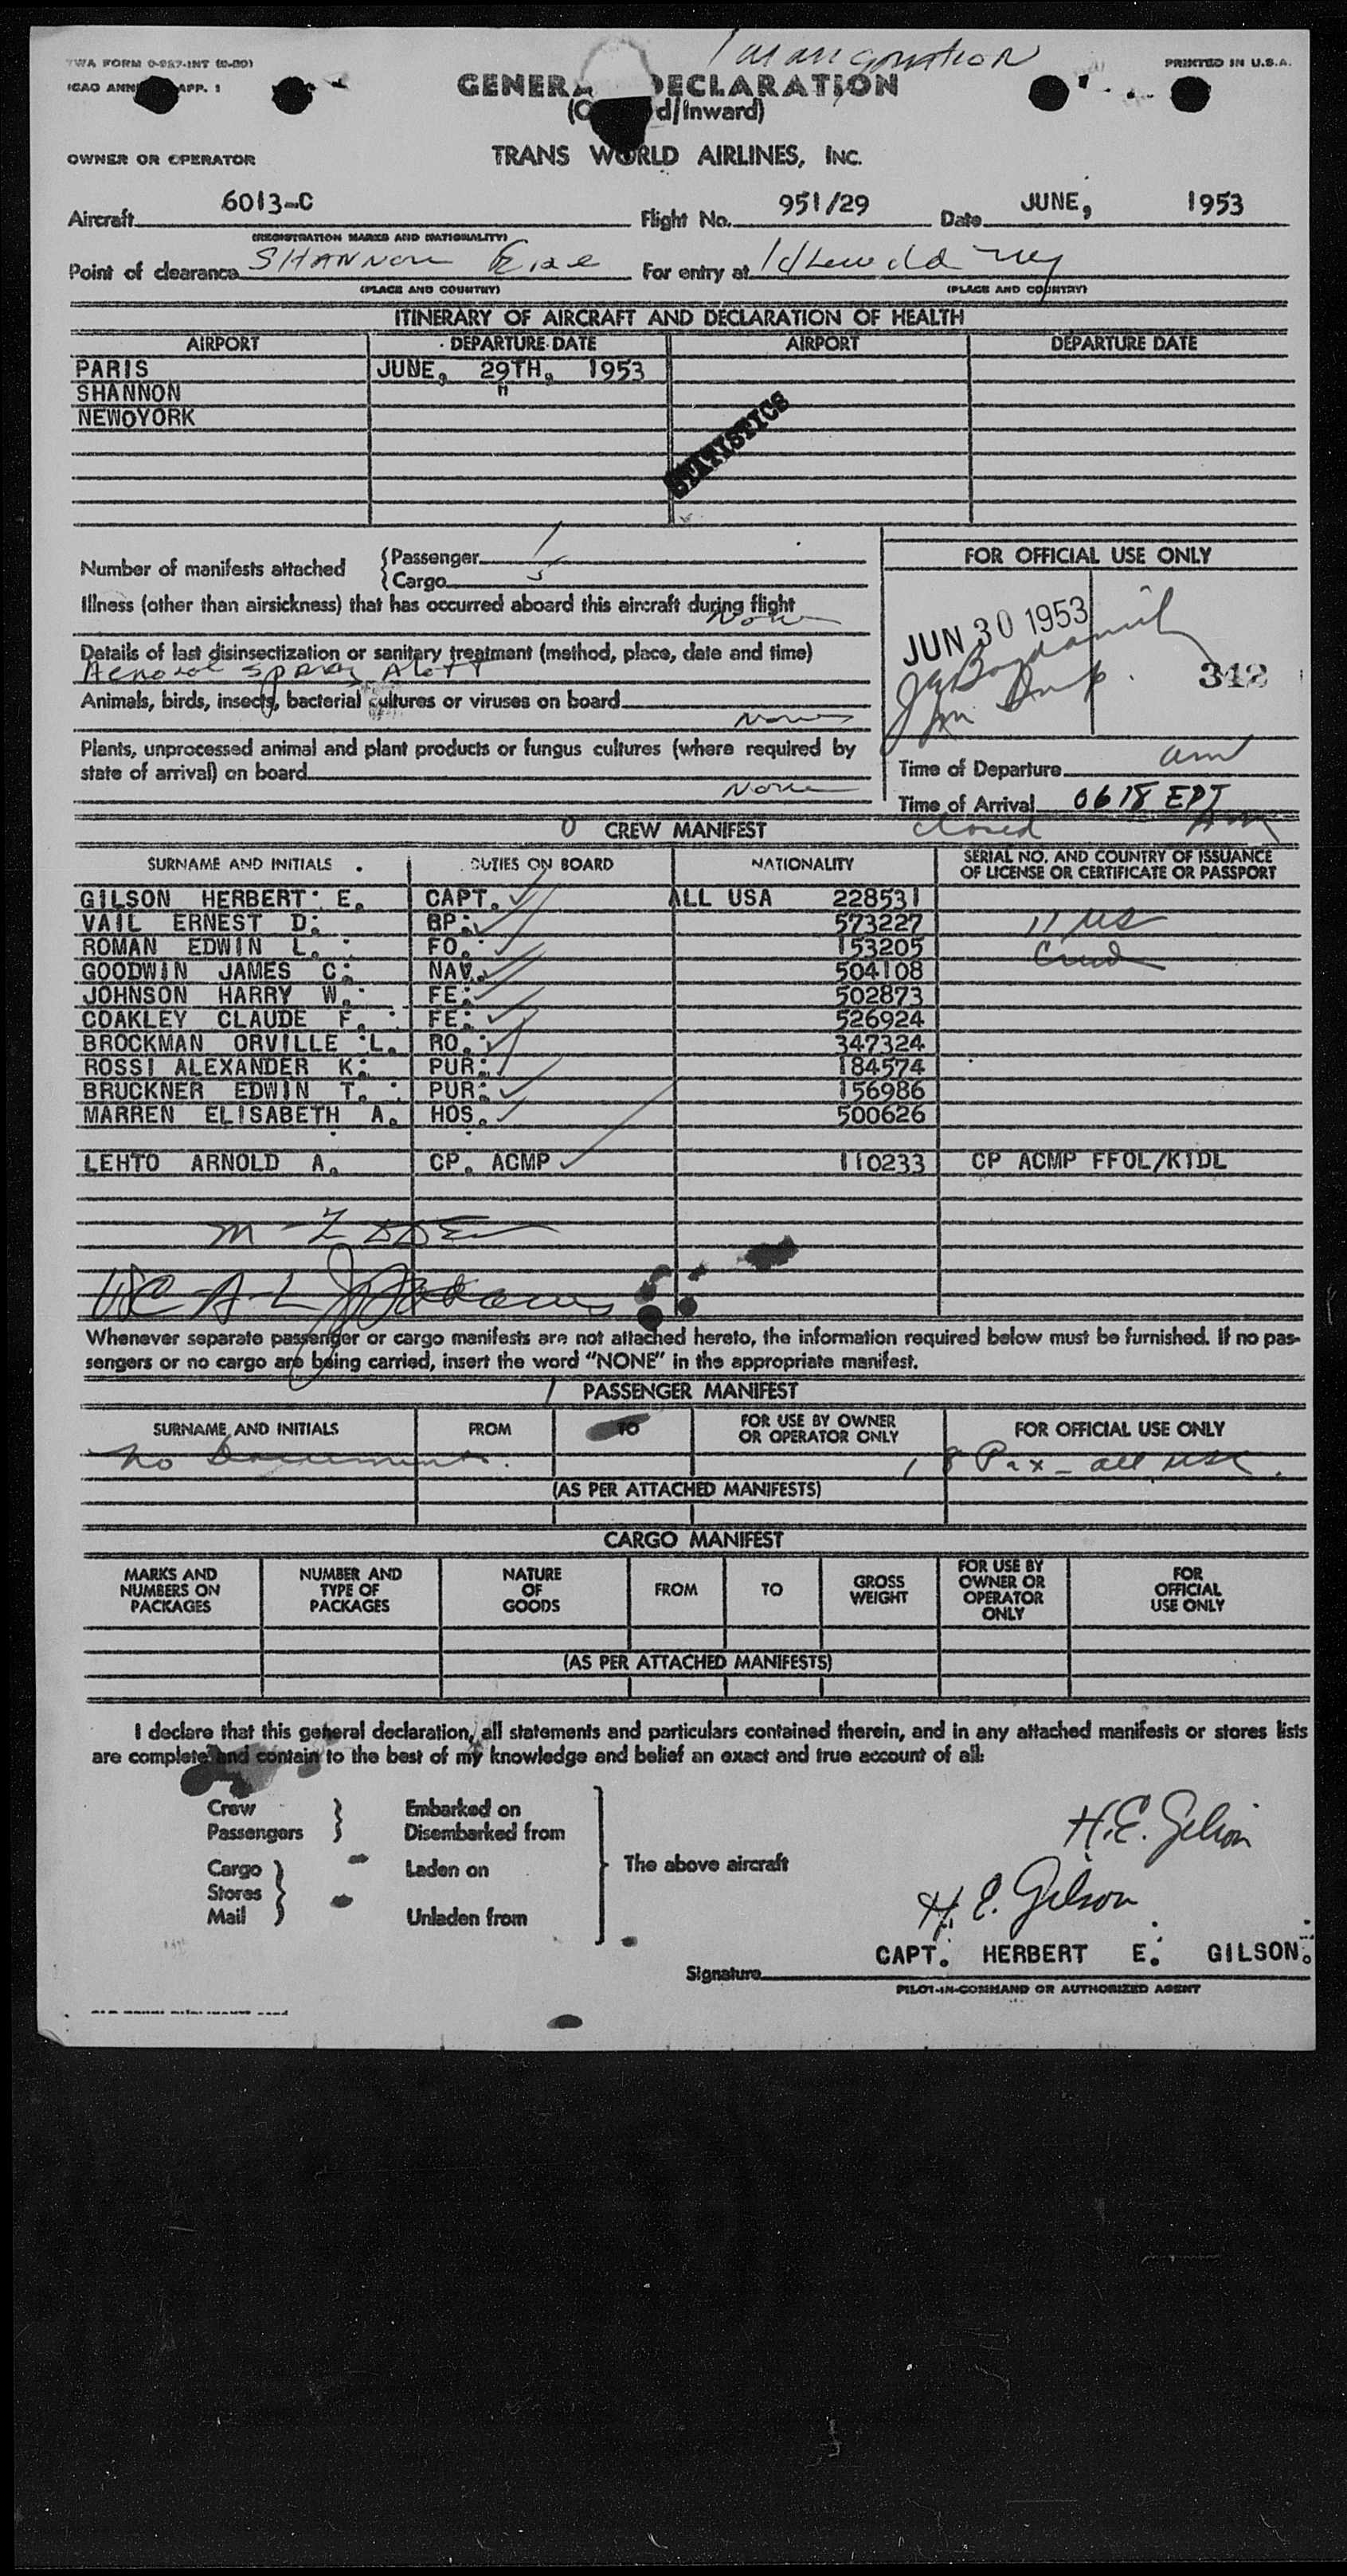 Immigration
TWA FORM 0-927-INT
PRINTED IN U.S.A.
ICAO APP. 1
GENERAL DECLARATION
d/Inward)
OWNER OR OPERATOR TRANS WORLD AIRLINES, INC.
Aircraft 6013-C Flight No. 951/29 Date JUNE, 1953
(REGISTRATION MARKS AND NATIONALITY)
Point of clearance SHANNON Eire For entry at Idlewild NY
(PLACE AND COUNTRY) (PLACE AND COUNTRY)
ITINERARY OF AIRCRAFT AND DECLARATION OF HEALTH
AIRPORT DEPARTURE DATE AIRPORT DEPARTURE DATE
PARIS JUNE, 29TH, 1953
SHANNON "
NEWOYORK
STATISTICS
Number of manifests attached {Passenger 1
{Cargo 5
Illness (other than airsickness) that has occurred aboard this aircraft during flight
None
Details of last disinsectization or sanitary treatment (method, place, date and time)
Aerosol Spray Aloft
Animals, birds, insects, bacterial cultures or viruses on board
None
Plants, unprocessed animal and plant products or fungus cultures (where required by
state of arrival) on board
None
FOR OFFICIAL USE ONLY
JUN 30 1953
342
Imm Insp.
Time of Departure am
Time of Arrival 0618 EDT
closed
0 CREW MANIFEST
SURNAME AND INITIALS DUTIES ON BOARD NATIONALITY SERIAL NO. AND COUNTRY OF ISSUANCE
OF LICENSE OR CERTIFICATE OR PASSPORT
GILSON HERBERT E. CAPT. ALL USA 228531
VAIL ERNEST D. BP. 573227 11 US
ROMAN EDWIN L. FO. 153205 Crew
GOODWIN JAMES C. NAV. 504108
JOHNSON HARRY W. FE. 502873
COAKLEY CLAUDE F. FE. 526924
BROCKMAN ORVILLE L. RO. 347324
ROSSI ALEXANDER K. PUR. 184574
BRUCKNER EDWIN T. PUR. 156986
MARREN ELISABETH A. HOS. 500626
LEHTO ARNOLD A. CP. ACMP 110233 CP ACMP FFOL/KIDL
Whenever separate passenger or cargo manifests are not attached hereto, the information required below must be furnished. If no pas-
sengers or no cargo are being carried, insert the word "NONE" in the appropriate manifest.
1 PASSENGER MANIFEST
SURNAME AND INITIALS FROM TO FOR USE BY OWNER
OR OPERATOR ONLY FOR OFFICIAL USE ONLY
No Documents. 18 Pax - all USC.
(AS PER ATTACHED MANIFESTS)
CARGO MANIFEST
MARKS AND
NUMBERS ON
PACKAGES
NUMBER AND
TYPE OF
PACKAGES
NATURE
OF
GOODS
FROM
TO
GROSS
WEIGHT
FOR USE BY
OWNER OR
OPERATOR
ONLY
FOR
OFFICIAL
USE ONLY
(AS PER ATTACHED MANIFESTS)
I declare that this general declaration, all statements and particulars contained therein, and in any attached manifests or stores lists
are complete and contain to the best of my knowledge and belief an exact and true account of all:
Crew
Passengers
Embarked on
Disembarked from
Cargo
Stores
Mail
Laden on
Unladen from
The above aircraft
H.E. Gilson
H. E. Gilson
CAPT. HERBERT E. GILSON.
Signature
PILOT-IN-COMMAND OR AUTHORIZED AGENT